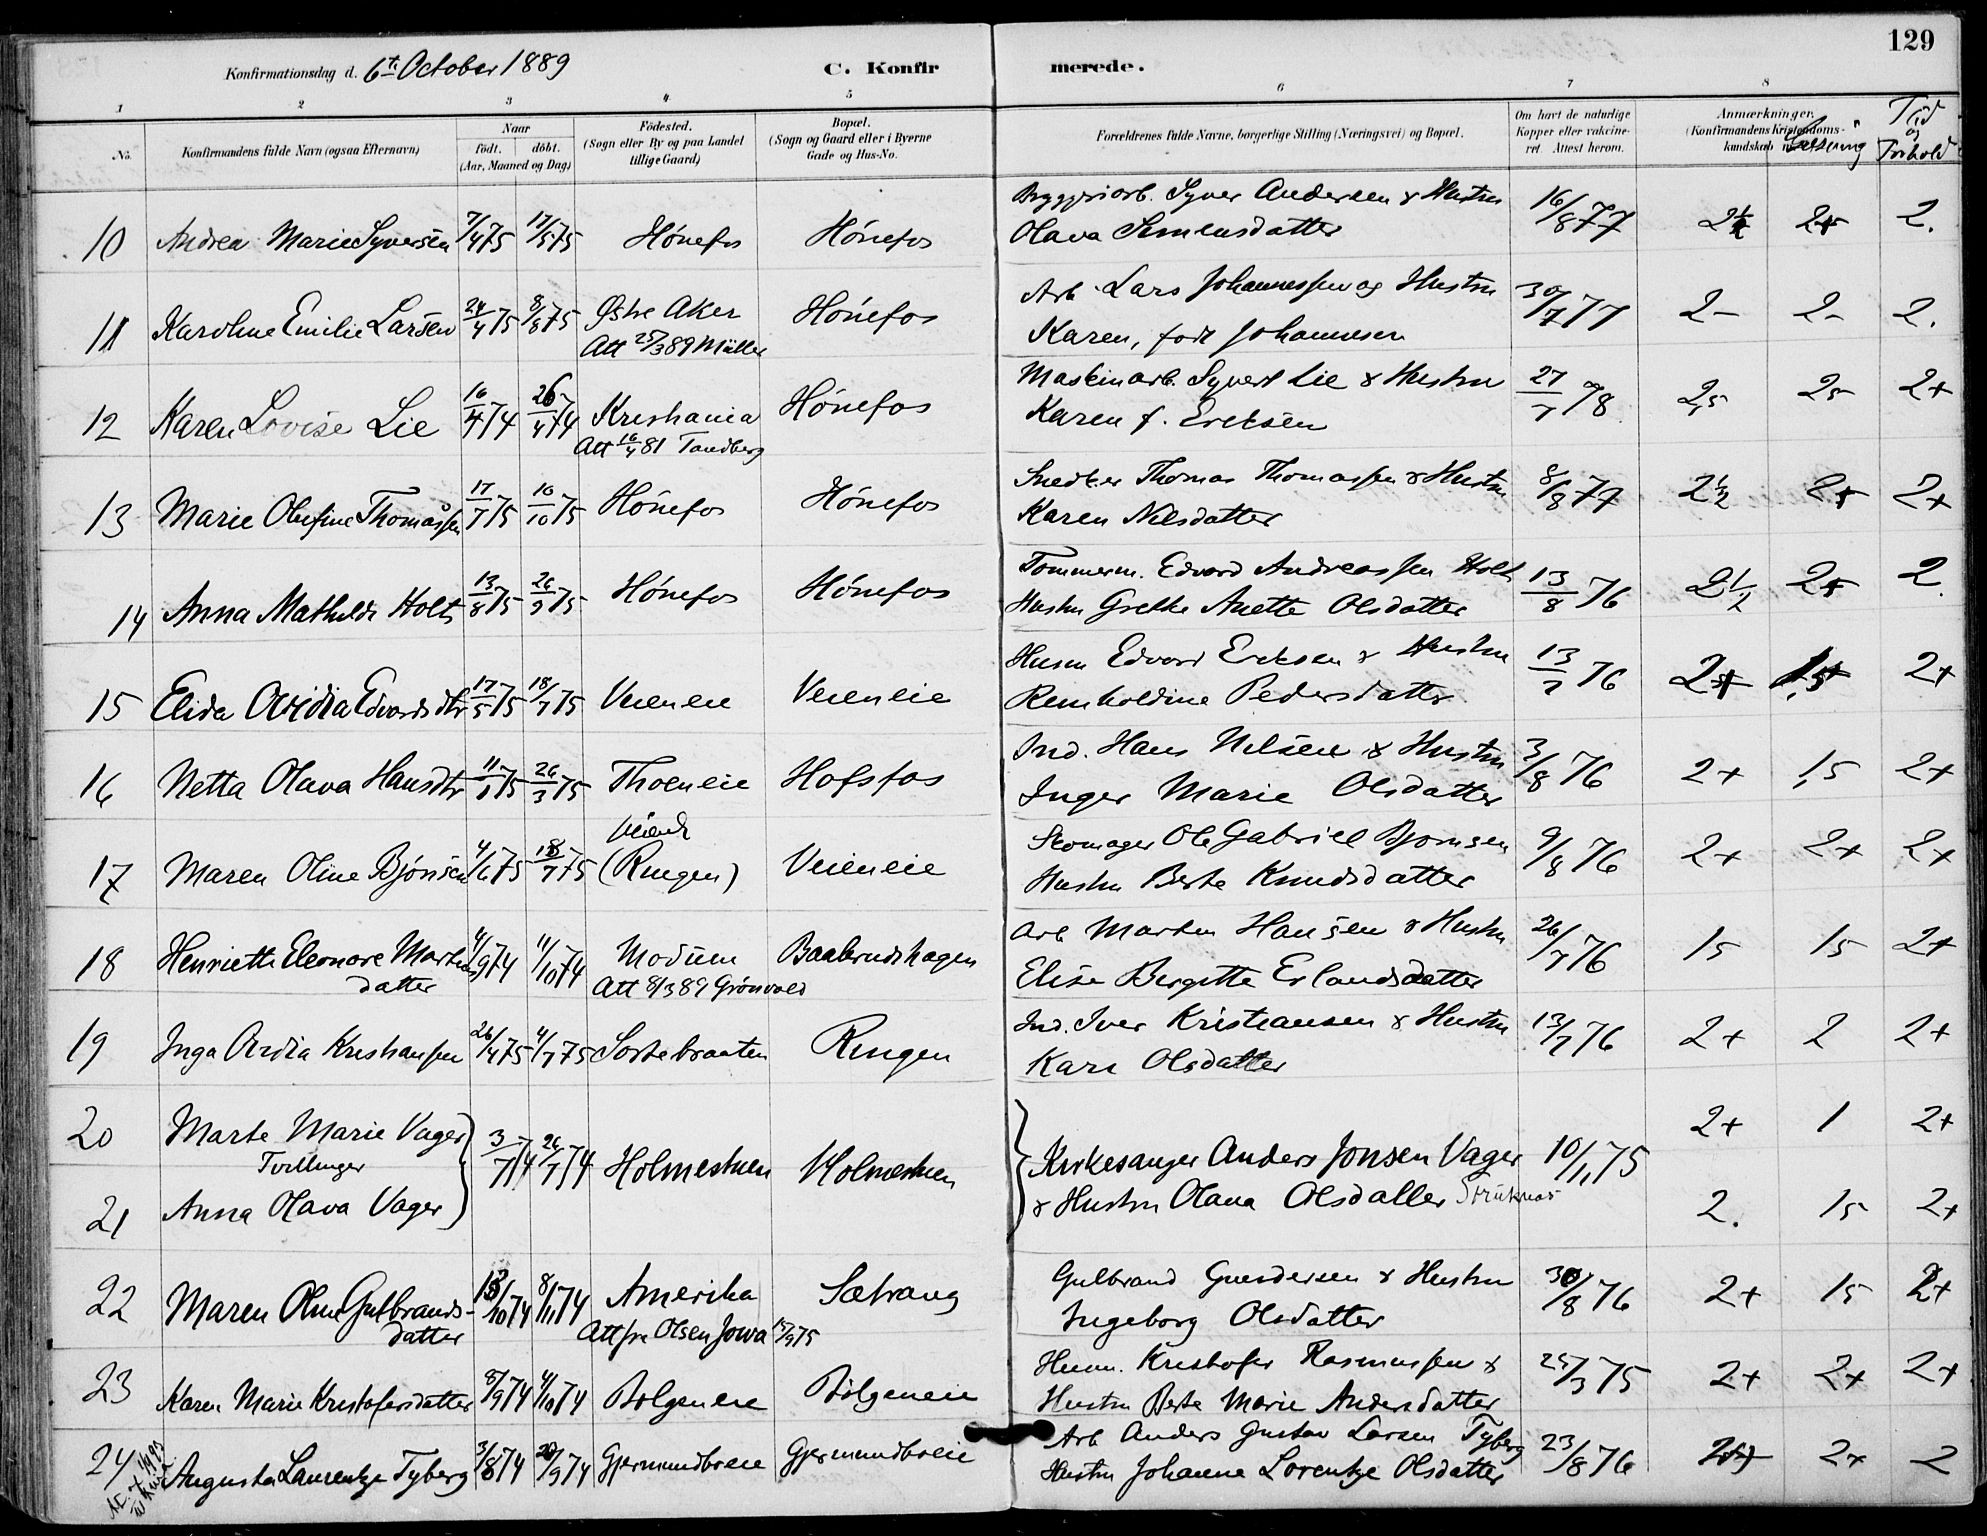 129
Konfirmationsdag d. 6te October 1889
C. Konfirmerede.
1 2 3 4 5 6 7 8
No.
Konfirmandens fulde Navn (ogsaa Efternavn)
Naar
födt. döbt.
(Aar, Maaned og Dag)
Födested.
(Sogn eller By og paa Landet
tillige Gaard)
Bopæl.
(Sogn og Gaard eller i Byerne
Gade og Hus-No.
Forældrenes fulde Navne, borgerlige Stilling (Næringsvei) og Bopæl.
Om havt de naturlige
Kopper eller vakcine-
ret. Attest herom.
Anmærkninger.
(Konfirmandens Kristendoms-
kundskab
Flid
og
Forhold
10 Andrea Marie Syversen 7/4 75 17/5 75 Hönefos Hönefos
Byggeriarb. Syver Andersen & Hustru
Olava Simensdatter 16/8 77 2½ 2+ 2.
11 Karoline Emilie Larsen 24/4 75 8/8 75 Østre Aker Hönefos
Att 25/3 89 Müller
Arb. Lars Johannessen og Hustru
Karen, födt Johannesen 30/7 77 2- 2- 2.
12 Karen Lovise Lie 16/4 74 26/4 74 Kristiania Hönefos
Att 16/4 81 Tandberg
Maskinarb. Syvert Lie & Hustru
Karen f. Ericksen 27/7 78 2,5 25 2+
13 Marie Olufine Thomassen 17/7 75 10/10 75 Hönefos Hönefos
Snedker Thomas Thomassen & Hustru
Karen Nilsdatter 8/8 77 2½ 2+ 2+
14 Anna Mathilde Holt 13/8 75 26/9 75 Hönefos Hönefos
Tømmerm. Edvard Andreassen Holt
Hustru Grethe Anette Olsdatter 13/8 76 2½ 2+ 2.
15 Elida Ovidia Edvardsdtr 17/5 75 18/7 75 Veieneie Veieneie
Husm Edvard Ericksen & Hustru
Reinholdine Pedersdatter 13/7 76 2+ 1,5 2+
16 Netta Olava Hansdtr 11/1 75 26/3 75 Thoeneie Hofsfos
Ind. Hans Nilsen & Hustru
Inger Marie Olsdatter 3/8 76 2+ 1,5 2+
17 Maren Oline Björnsen 4/6 75 18/7 75 (Ringen) Veieneie
Skomager Ole Gabriel Bjornsen
Hustru Berte Knudsdatter 9/8 76 2+ 2+ 2+
18 Henriette Eleonore Martins 4/9 74 11/10 74 Modum Baabrudshagen
datter Att 8/3 89 Grönvold
Arb Marten Hansen & Hustru
Elise Birgitte Erlandsdatter 26/7 76 15 15 2+
19 Inga Ovidia Kristiansen 26/4 75 4/7 75 Sortebraaten Ringen
Ind. Iver Kristiansen & Hustru
Kari Olsdatter 13/7 76 2+ 2 2+
20 Marte Marie Vager 2+ 1 2+
Tvillinger 3/7 74 26/7 74 Holmestuen Holmestuen
Kirkesanger Anders Jonsen Vager 10/11 75
& Hustru Olava Olsdatter
21 Anna Olava Vager 2. 15 2+
22 Maren Oline Gulbrands- 13/10 74 8/11 74 Amerika Sætrang
datter Att fra Olsen Jowa 15/9 75
Gulbrand Gundersen & Hustru
Ingeborg Olsdatter 30/8 76 2+ 15 2+
23 Karen Marie Kristofersdatter 8/9 74 4/10 74 Bölgeneie Bölgeneie
Husm. Kristofer Rasmussen &
Hustru Berte Marie Andersdatter 25/3 75 2+ 2+ 2+
24 Augusta Laurentze Tyberg 3/8 74 20/9 74 Gjermundboeie Gjermundboeie
Arb Anders Gustav Larsen Tyberg
Hustru Johanne Lorentze Olsdatter 23/8 76 2+ 2